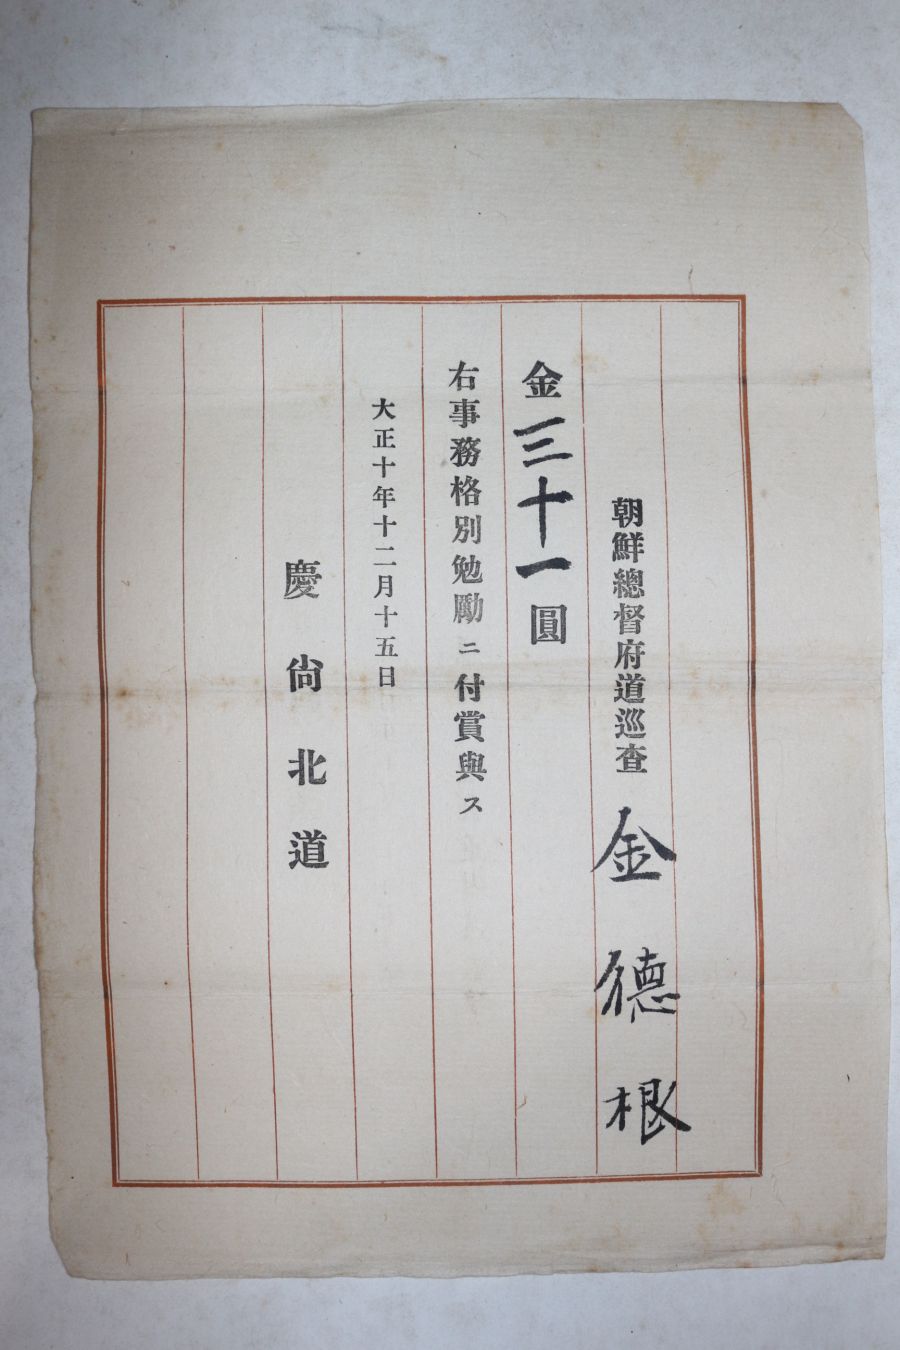 朝鮮總督府道巡查 金德根
金三十一圓
右事務格別勉勵ニ付賞與ス
大正十年十二月十五日
慶尙北道